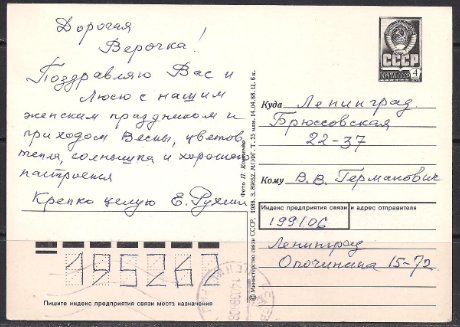 Дорогая
Верочка!
Поздравляю Вас и
Люсю с нашим
женским праздником и
приходом Весны, цветов
тепла, солнышка и хорошего
настроения
Крепко целую Е.
СССР
4
Куда Ленинград
Брюссовская
22-37
Кому В.В. Германович
Индекс предприятия связи и адрес отправителя
199106
Ленинград
Опочинина 15-72
195262
Пишите индекс предприятия связи места назначения
© Министерство связи СССР. 1988.